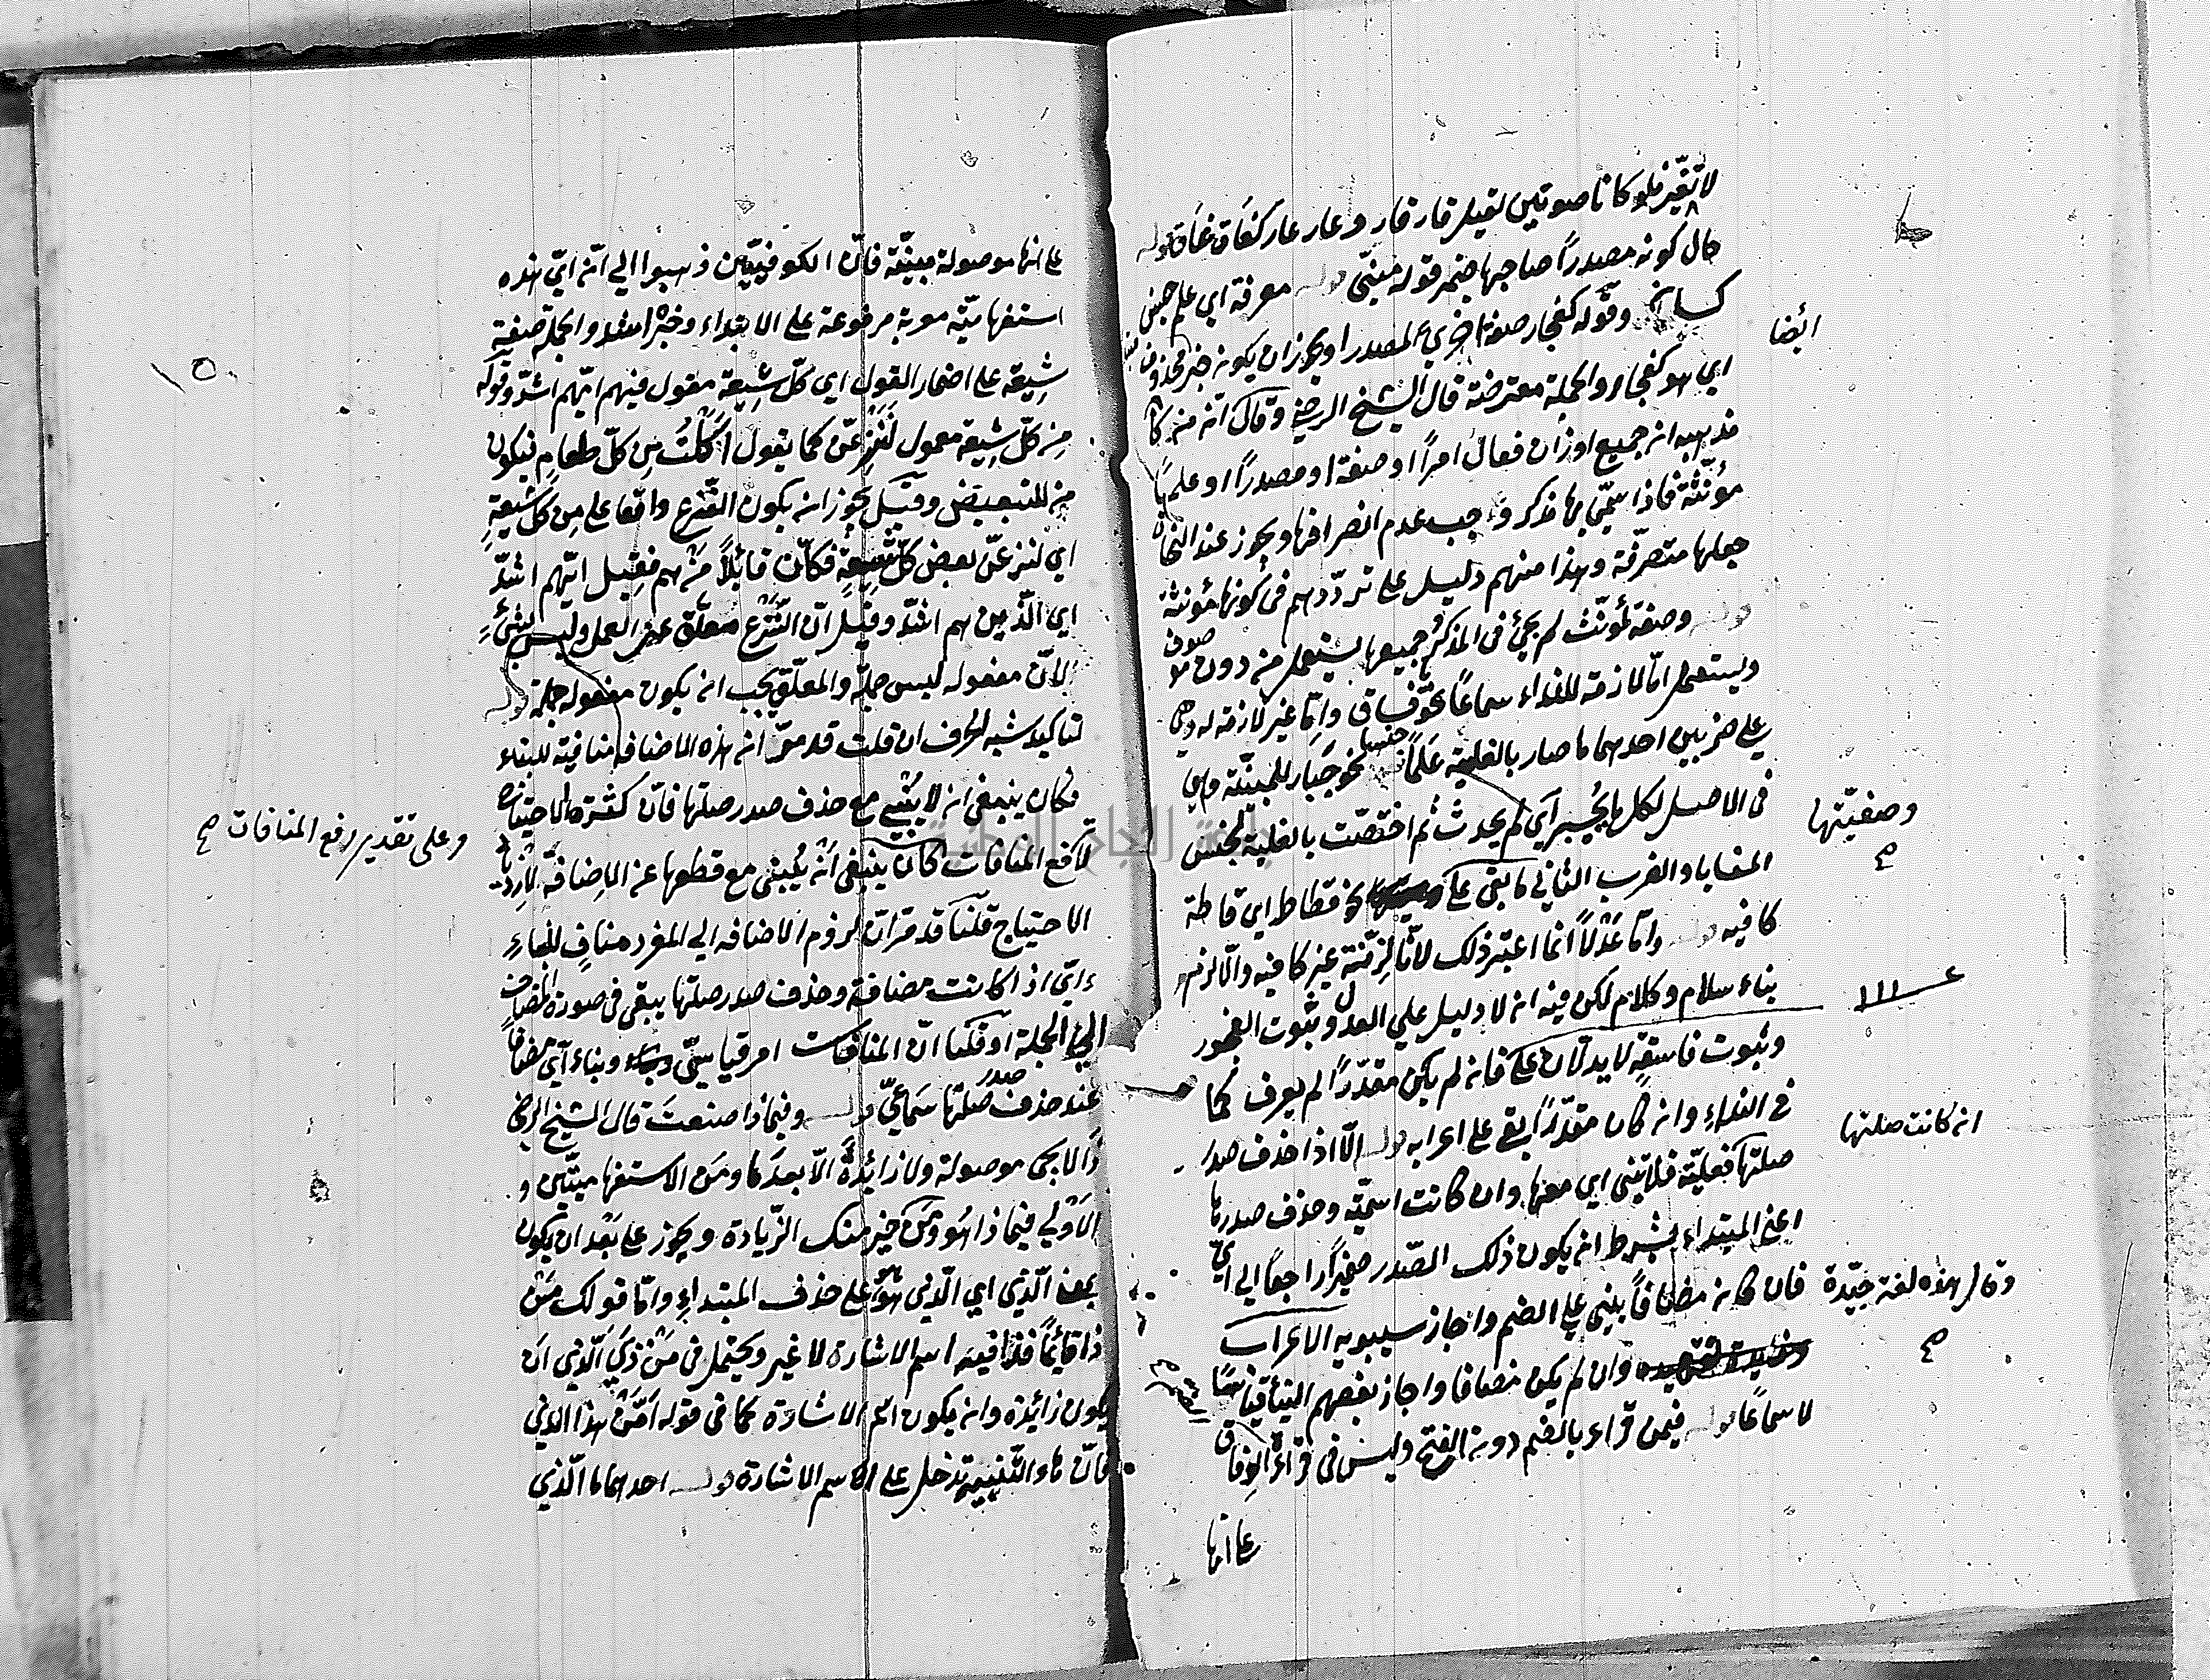 لا تتغيّر فلو كانا صوتين لقيل قار قار وعار عار كغاق غاق قوله
حال كونه مصدرًا صاحبها ضمير قوله مبنيّ قوله معرفة اي علم جنس
كسبحان وقوله كفجار صفة اخري للمصدر او يجوز ان يكون خبر محذوف
ايضا
اي هو كفجار والجملة معترضة قال الشيخ الرضي وقال انه من
مذهبه ان جميع اوزان فعال امرًا او صفة او مصدرًا او علمًا
مؤنثة فاذا سمّي بها مذكر وجب عدم انصرافها ويجوز عند النحاة
جعلها منصرفة وهذا منهم دليل على تردّدهم في كونها مؤنثة
قوله وصفة لمؤنّث لم يجئ في المذكر وجميعها يستعمل من دون موصوف
ويستعمل امّا لازمة للنداء سماعًا نحو فساق وامّا غير لازمة له وهي
علي ضربين احدهما ما صار بالغلبة علمًا جنسيا نحو جباز للمنيّة وهي
في الاصل لكل ما يجبر اي لم يحدث ثم اختصّت بالغلبة لجنس
المنايا والضرب الثاني ما بقي علي نحو قطاط اي قاطة
وصفيّتها صح
كافية قوله وامّا عدلًا انما اعتبر ذلك لانّ الزّنة غير كافية والّا لزم
بناء سلام وكلام لكن فيه ان لا دليل علي العدل وثبوت الفجور
وثبوت فاسقة لا يدلّان علي فانه لم يكن مقدّرًا لم يعرف كما
في النداء وان كان مقدّرًا بقي على اعرابه قوله الّا اذا حذف صدر
ان كانت صلتها
صلتها فعليّة فلا تبنى اي معها وان كانت اسميّة وحذف صدرها
اعني المبتداء بشرط ان يكون ذلك الصّدر ضميرًا راجعا الي ايّ
فان كان مضافًا بني علي الضم واجاز سيبويه الاعراب
وقال هذه لغة جيّدة صح
وان لم يكن مضافا واجاز بعضهم البناء قياسًا
لا سماعًا قوله فيمن قراء بالضم دون الفتح وليس في قراءة الوفاق
علي انها
علي انها موصولة مبنيّة فانّ الكوفيّين ذهبوا الي انّ ايّ هذه
استفهاميّة معربة مرفوعة علي الابتداء وخبره اشد والجملة صفة
١٥٠
شيعة علي اضمار القول اي كلّ شيعة مقول فيهم ايّهم اشدّ وقوله
من كلّ شيعة معمول لننزعنّ كما يقول اكلت من كلّ طعام فيكون
من للتبعيض وقيل يجوز ان يكون النّزع واقعا علي من كلّ شيعة
اي لننزعنّ بعض كلّ شيعة فكانّ قائلًا من هم فقيل ايّهم اشدّ
اي الّذين هم اشدّ وقيل انّ النّزع معلّق عن العمل وليس بشئ
لانّ مفعوله ليس جملة والمعلّق يجب ان يكون مفعوله جملة قوله
لتاكيد شبه الحرف ان قلت قد مرّ ان هذه الاضافة منافية للبناء
فكان ينبغي ان لا يبني مع حذف صدر صلتها فانّ كثرة الاحتياج
لا ترفع المنافات كما ينبغي انّه يبني مع قطعها عن الاضافة لازدياد
وعلى تقدير رفع المنافات صح
الاحتياج قلنا قد مرّ انّ لزوم الاضافة الي المفرد مناف للبناء
وايّ اذا كانت مضافة وحذف صدر صلتها يبقى في صورة المضاف
الي الجملة او قلنا انّ المنافات امر قياسيّ وبناء ايّ مضافا
عند حذف صدر صلتها سماعيّ قوله وفيماذا صنعت قال الشيخ الرضي
ذا لا يجئ موصولة ولا زائدة الّا بعد ما ومن الاستفهاميّتين و
الاولي فيما ذا هو ومن ذا خير منك الزّيادة ويجوز علي بعد ان يكون
بمعنى الّذي اي الّذي هو علي حذف المبتداء وامّا قولك من
ذا قائمًا فذا فيه اسم الاشارة لا غير ويحتمل في من ذي الّذي ان
يكون زائدة وان يكون اسم الاشارة كما في قوله امّن هذا الذي
فانّ هاء التّنبيه تدخل علي الاسم الاشارة قوله احدهما ما الّذي